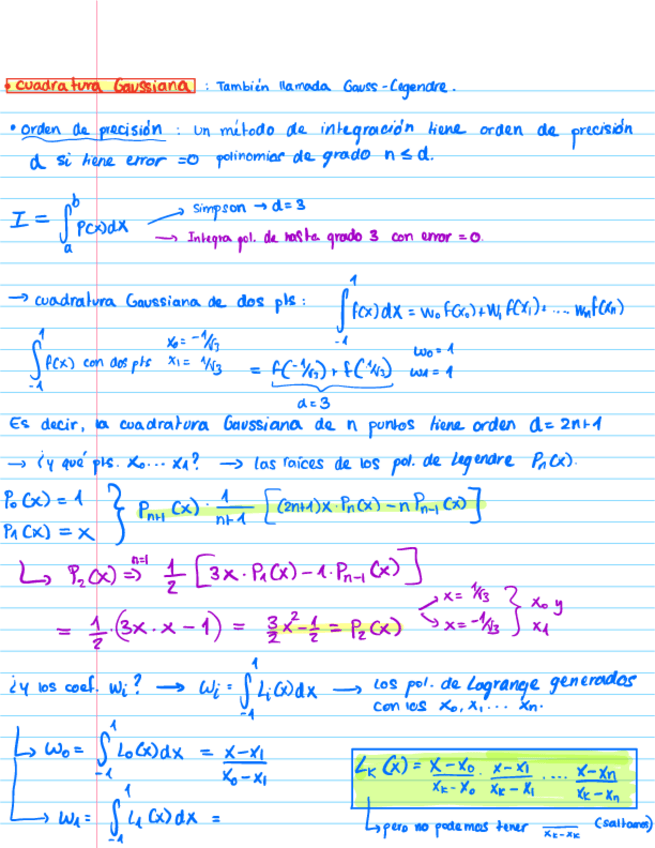 • Cuadratura Gaussiana : También llamada Gauss-Legendre.
• orden de precisión : un método de integración tiene orden de precisión
d si tiene error =0 polinomios de grado n ≤ d.
I = ∫_a^b P(x)dx → Simpson → d=3
→ Integra pol. de hasta grado 3 con error = 0.
→ cuadratura Gaussiana de dos pts : ∫_{-1}^{1} f(x)dx = w₀ f(x₀) + w₁ f(x₁) + ... wₙ f(xₙ)
∫_{-1}^{1} f(x) con dos pts x₀ = -1/√3 x₁ = 1/√3 = f(-1/√3) + f(1/√3) w₀ = 1 w₁ = 1
d = 3
Es decir, la cuadratura Gaussiana de n puntos tiene orden d = 2n+1
→ ¿y qué pts. x₀ ... x₁? → las raíces de los pol. de Legendre Pₙ(x).
P₀(x) = 1
P₁(x) = x } Pₙ₊₁(x) · 1/(n+1) [(2n+1)x · Pₙ(x) - n Pₙ₋₁(x)]
↳ P₂(x) ⇒ n=1 1/2 [3x · P₁(x) - 1 · Pₙ₋₁(x)]
= 1/2 · (3x · x - 1) = 3/2 x² - 1/2 = P₂(x) → x = 1/√3 → x = -1/√3 } x₀ y x₁
¿y los coef. wᵢ? → wᵢ = ∫_{-1}^{1} Lᵢ(x)dx → los pol. de Lagrange generados
con los x₀, x₁, ... xₙ.
↳ w₀ = ∫_{-1}^{1} L₀(x)dx = (x-x₁)/(x₀-x₁)
L_K(x) = (x-x₀)/(x_k-x₀) · (x-x₁)/(x_k-x₁) · ... · (x-xₙ)/(x_k-xₙ)
↳ w₁ = ∫_{-1}^{1} L₁(x)dx =
↳ pero no podemos tener —/(x_k-x_k) (saltamos)